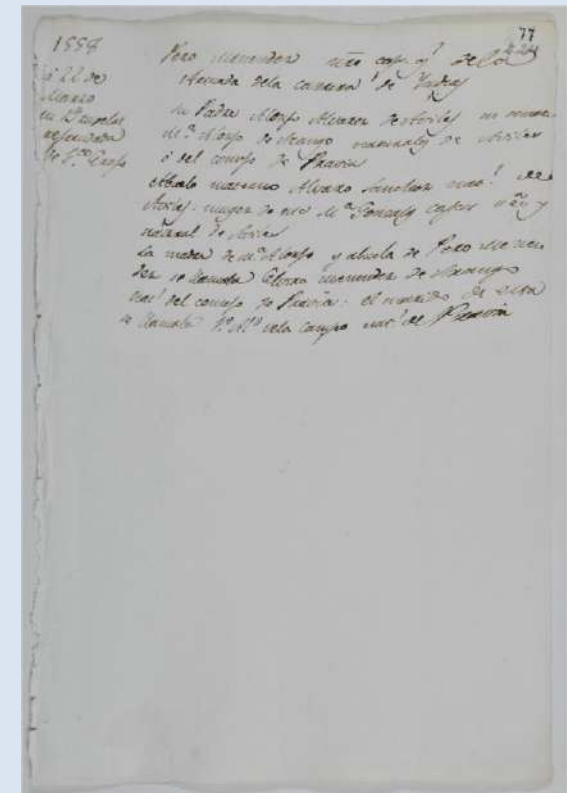 77
224
1558
à 22 de
Marzo
en Bruselas
refrendada
de Fco. Eraso
Pero Menendez nro cap. gl. de la
Armada dela carrera de Yndias
su Padre Alonso Alvarez de Aviles su
Mª Alonso de Arango naturales de Aviles
o del concejo de Pravia
Abuelo Alvaro Sanchez nat.l de
Aviles: muger de este Mª Gonzalez y
natural de Aviles
La madre de Mª Alonso y abuela de Pero Menen
dez se llamaba Elvira Menendez de Arango
nat.l del concejo de Pravia: el marido de esta
se llamaba Pº Alº dela Campo nat.l de Pravia